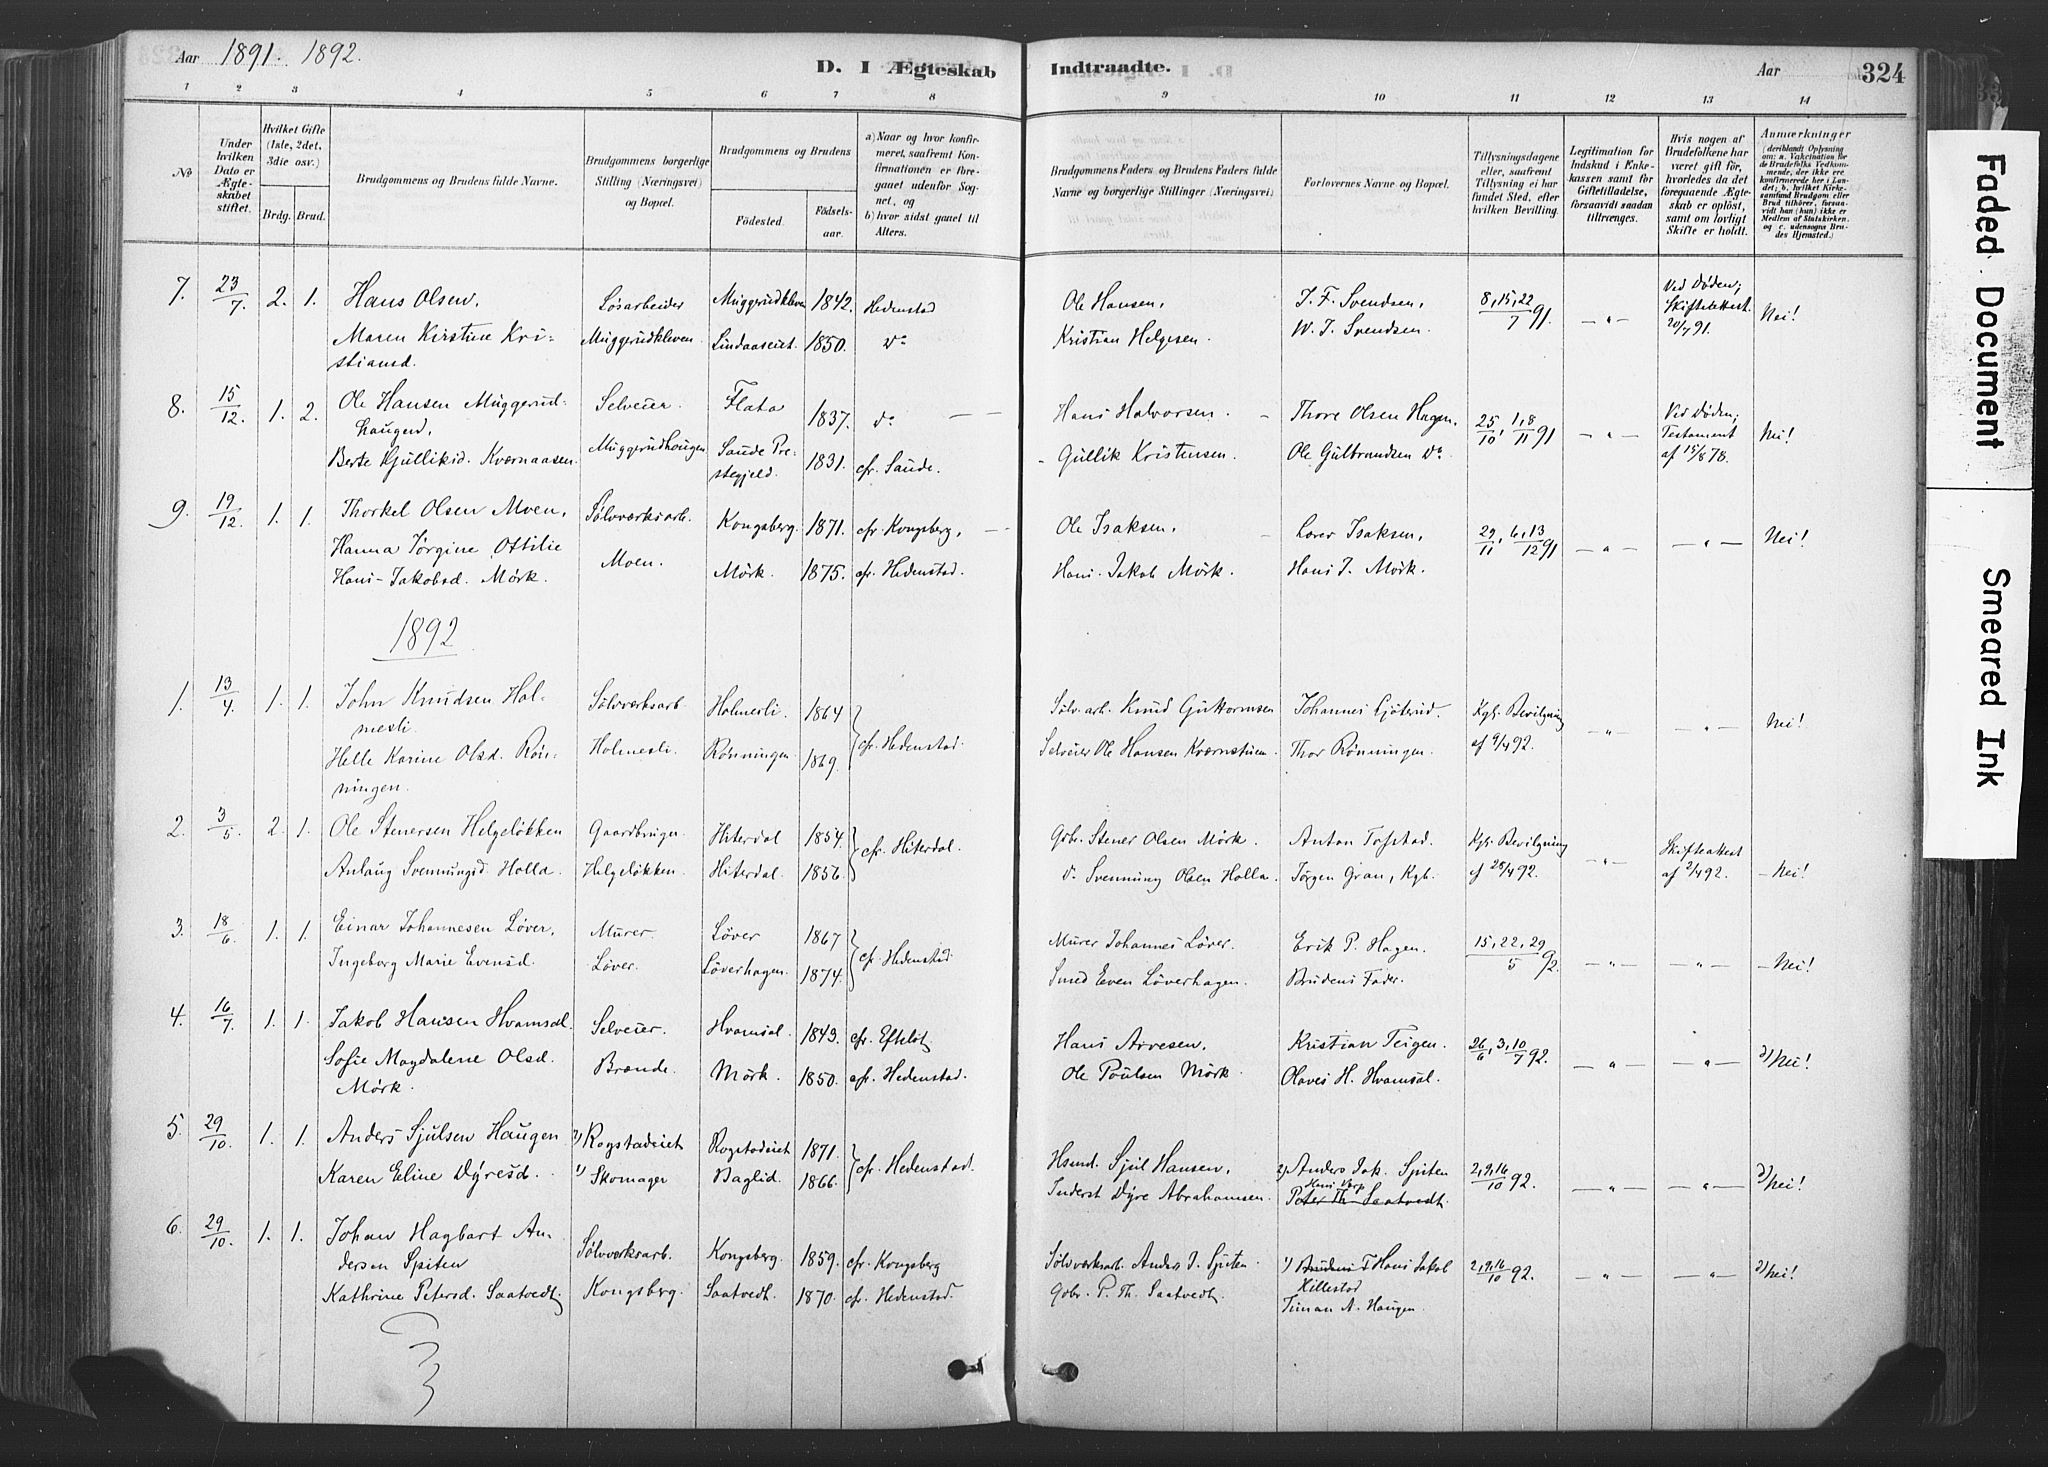 Aar 1891. 1892.
D. I Ægteskab Indtraadte.
Aar
324
1 2 3 4 5 6 7 8 9 10 11 12 13 14
No
Under hvilken Dato er Ægteskabet stiftet.
Hvilket Gifte (1ste, 2det, 3die osv.)
Brdg. Brud.
Brudgommens og Brudens fulde Navne.
Brudgommens borgerlige Stilling (Næringsvei) og Bopæl.
Brudgommens og Brudens
Fødested.
Fødselsaar.
a) Naar og hvor konfirmeret, saafremt Konfirmationen er foregaaet udenfor Sognet, og
b) hvor sidst gaaet til Alters.
Brudgommens Faders og Brudens Faders fulde Navne og borgerlige Stillinger (Næringsvei)
Forlovernes Navne og Bopæl.
Tillysningsdagene eller, saafremt Tillysning ei har fundet Sted, efter hvilken Bevilling.
Legitimation for Indskud i Enkekassen samt for Giftetilladelse, forsaavidt saadan tiltrænges.
Hvis nogen af Brudefolkene har været gift før, hvorledes da det foregaaende Ægteskab er opløst, samt om lovligt Skifte er holdt.
Anmærkninger (deriblandt Oplysning om: a. Vakcination for de Brudefolks Vedkommende, der ikke ere konfirmerede her i Landet; b. hvilket Kirkesamfund Brudgom eller Brud tilhører, forsaavidt han (hun) ikke er Medlem af Statskirken, og c. udensogns Brudes Hjemsted.)
7. 23/7 2. 1. Hans Olsen, Løsarbeider Muggerudkleven 1842. Hedenstad Ole Hansen, J. F. Svendsen, 8, 15, 22/7 91. — " — Ved Døden; Skifteattest 20/7 91. Nei!
Maren Kirstine Kristiansd. Muggerudkleven. Lindaaseiet. 1850. do Kristian Helgesen. W. J. Svendsen.
8. 15/12 1. 2. Ole Hansen Muggerudhaugen, Selveier. Flata 1837. do — — Hans Halvorsen. – Thore Olsen Hagen, 25/10, 1, 8/11 91 — " — Ved Døden; Testament af 15/8 78. Nei!
Berte Gullikid. Kværnaasen. Muggerudhougen Saude Prestegjeld. 1831. cfr. Saude. – Gullik Kristensen. Ole Gulbrandsen do
9. 19/12 1. 1. Thorkel Olsen Moen, Sølvværksarb. Kongsberg. 1871. cfr. Kongsberg, — Ole Isaksen, – Lars Isaksen, 29/11, 6, 13/12 91 — " — — " — Nei!
Hanna Jørgine Ottilie Hans-Jakobsd. Mörk. Moen. Mörk. 1875. cfr. Hedenstad. Hans-Jakob Mörk. Hans J. Mörk.
1892
1. 13/4. 1. 1. John Knudsen Holmesli. Sølvværksarb. Holmesli. 1864 cfr. Hedenstad. Sølv. arb. Knud Guttormsen Johannes Gjöterud. Kgl. Bevilgning af 9/4 92. — " — " — Nei!
Helle Karine Olsd. Rönningen. Holmesli. Rönningen. 1869. Selveier Ole Hansen Kværnstuen. Thor Rönningen.
2. 3/5. 2. 1. Ole Stenersen Helgeløkken Gaardbruger Hiterdal 1854. cfr. Hiterdal. Gbr. Stener Olsen Mörk. Anton Tofstad. Kgl. Bevilgning af 28/4 92. — " — Skifteattest af 2/4 92. — Nei!
Anlaug Svennungsd. Holla. Helgeløkken. Hiterdal. 1856. do Svennung Olsen Holla. Jørgen Gran, Kgb.
3. 18/6. 1. 1. Einar Johannesen Löver, Murer. Löver 1867 cfr. Hedenstad. Murer Johannes Löver. Erik P. Hagen. 15, 22, 29/5 92. — " — — " — — Nei!
Ingeborg Marie Evensd. Löver. Löverhagen. 1874. Smed Even Löverhagen. Brudens Fader.
4. 16/7. 1. 1. Jakob Hansen Hvamsal. Selveier. Hvamsal. 1843. cfr. Efteløt Hans Arvesen, Kristian Teigen. 26/6, 3, 10/7 92. — " — — " — Nei!
Sofie Magdalene Olsd. Mörk. Brænde. Mörk. 1850. cfr. Hedenstad. Ole Poulsen Mörk. Olaves H. Hvamsal.
5. 29/10. 1. 1. Anders Sjulsen Haugen 2) Rogstadeiet Rogstadeiet 1871. cfr. Hedenstad. Hsmd. Sjul Hansen, 2) Anders Jak. Spiten 2, 9, 16/10 92. — " — — " — Nei!
Karen Eline Dyresd. 1) Skomager Baglid. 1866. Inderst Dyre Abrahamsen. Hans Verp Peter Th. Saatvedt
6. 29/10. 1. 1. Johan Hagbart Andersen Spiten Sølvværksarb. Kongsberg. 1859. cfr. Kongsberg Sølvværksarb. Anders J. Spiten 1) Brudens F Hans Jakob Killestad 2, 9, 16/10 92. — " — — " — Nei!
Kathrine Petersd. Saatvedt. Kongsberg. Saatvedt. 1870. cfr. Hedenstad. Gbr. P. Th. Saatvedt Timan A. Haugen.
Faded Document
Smeared Ink